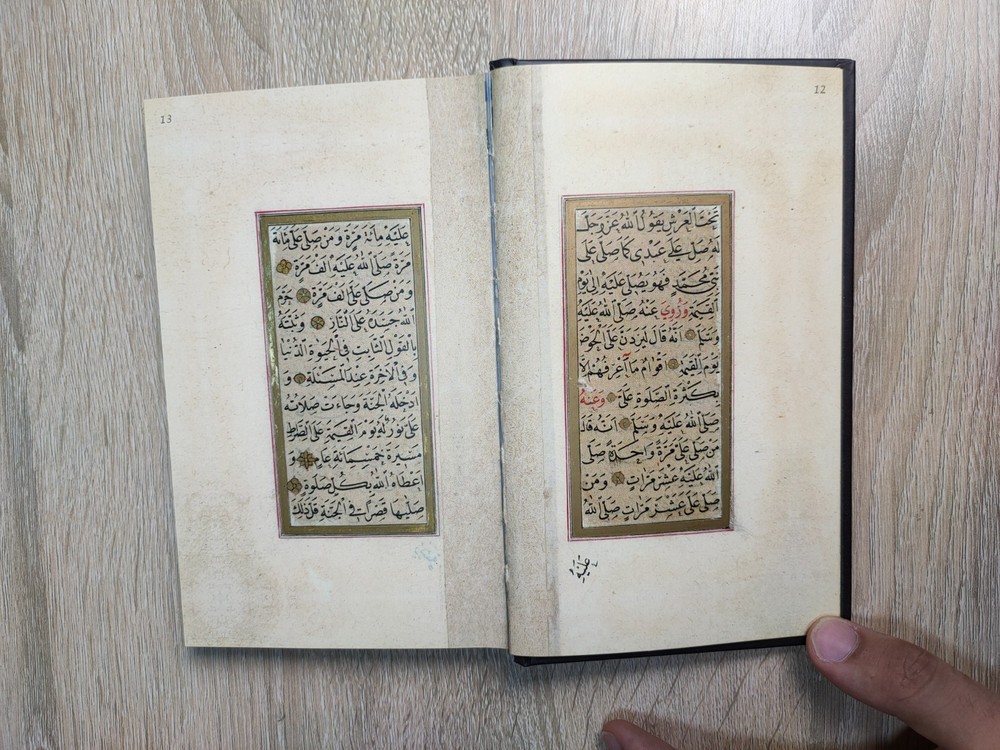 12
تَحْتَ الْعَرْشِ يَقُولُ اللهُ عَزَّ وَجَلَّ
لَهُ صَلِّ عَلَى عَبْدِي كَمَا صَلَّى عَلَى
نَبِيِّ مُحَمَّدٍ فَهُوَ يُصَلِّي عَلَيْهِ إِلَى يَوْمِ
الْقِيٰمَةِ وَرُوِيَ عَنْهُ صَلَّى اللهُ عَلَيْهِ
وَسَلَّمَ أَنَّهُ قَالَ لَيَرِدَنَّ عَلَى الْحَوْضِ
يَوْمَ الْقِيٰمَةِ أَقْوَامٌ مَا أَعْرِفُهُمْ إِلَّا
بِكَثْرَةِ الصَّلٰوةِ عَلَيَّ وَعَنْهُ
صَلَّى اللهُ عَلَيْهِ وَسَلَّمَ أَنَّهُ قَالَ
مَنْ صَلَّى عَلَيَّ مَرَّةً وَاحِدَةً صَلَّى
اللهُ عَلَيْهِ عَشْرَ مَرَّاتٍ وَمَنْ
صَلَّى عَلَيَّ عَشْرَ مَرَّاتٍ صَلَّى اللهُ
عَلَيْهِ
13
عَلَيْهِ مِائَةَ مَرَّةٍ وَمَنْ صَلَّى عَلَيَّ مِائَةَ
مَرَّةٍ صَلَّى اللهُ عَلَيْهِ أَلْفَ مَرَّةٍ
وَمَنْ صَلَّى عَلَيَّ أَلْفَ مَرَّةٍ حَرَّمَ
اللهُ جَسَدَهُ عَلَى النَّارِ وَثَبَّتَهُ
بِالْقَوْلِ الثَّابِتِ فِي الْحَيٰوةِ الدُّنْيَا
وَفِي الْآخِرَةِ عِنْدَ الْمَسْئَلَةِ وَ
أَدْخَلَهُ الْجَنَّةَ وَجَاءَتْ صَلَاتُهُ
عَلَيَّ نُورٌ لَهُ يَوْمَ الْقِيٰمَةِ عَلَى الصِّرَاطِ
مَسِيرَةَ خَمْسِمِائَةِ عَامٍ وَ
أَعْطَاهُ اللهُ بِكُلِّ صَلٰوةٍ
صَلَّيهَا قَصْرًا فِي الْجَنَّةِ قَلَّ ذٰلِكَ